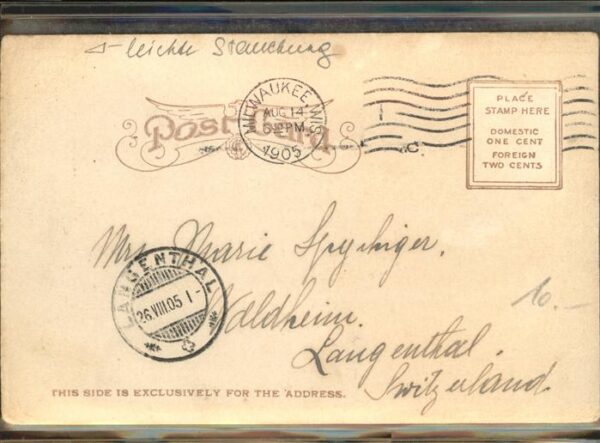 leichte Stauchung
MILWAUKEE, WIS.
AUG 14
PM
1905
Post Card
PLACE
STAMP HERE
DOMESTIC
ONE CENT
FOREIGN
TWO CENTS
C
Mrs. Marie Spychiger.
LANGENTHAL
26.VIII.05 1-
Waldheim.
10.-
Langenthal.
Switzerland.
THIS SIDE IS EXCLUSIVELY FOR THE ADDRESS.